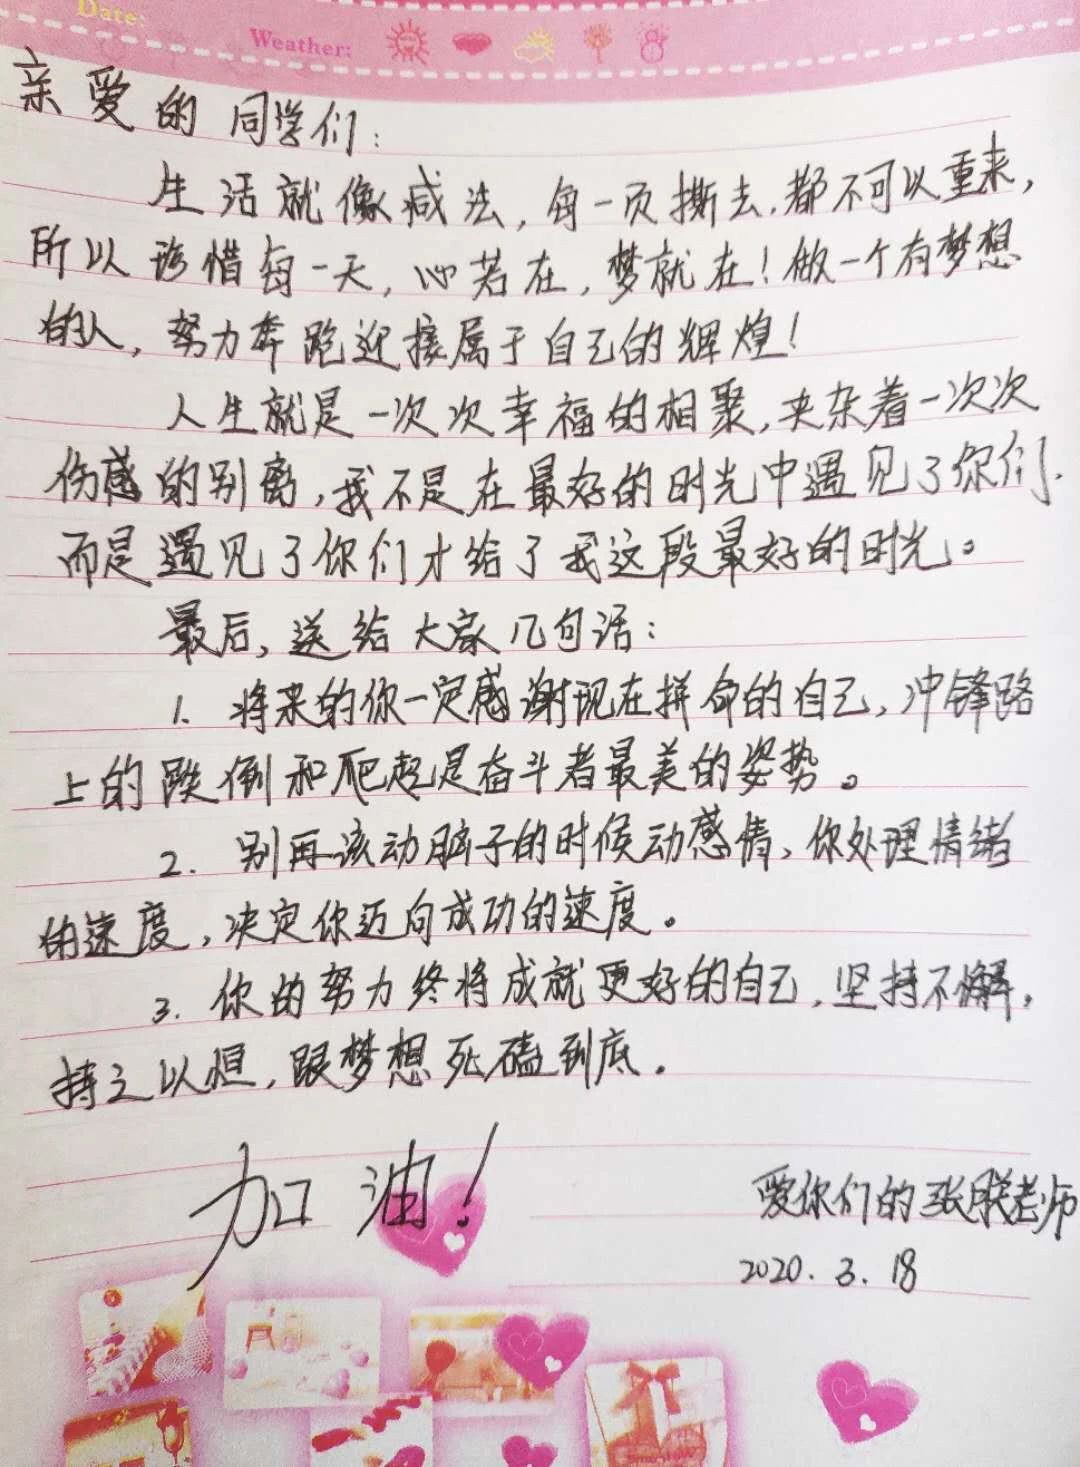 Date:
Weather:
亲爱的同学们:
生活就像减法,每一页撕去,都不可以重来,
所以珍惜每一天,心若在,梦就在!做一个有梦想
的人,努力奔跑迎接属于自己的辉煌!
人生就是一次次幸福的相聚,夹杂着一次次
伤感的别离,我不是在最好的时光中遇见了你们,
而是遇见了你们才给了我这段最好的时光。
最后,送给大家几句话:
1. 将来的你一定感谢现在拼命的自己,冲锋路
上的跌倒和爬起是奋斗者最美的姿势。
2. 别再该动脑子的时候动感情,你处理情绪
的速度,决定你迈向成功的速度。
3. 你的努力终将成就更好的自己,坚持不懈,
持之以恒,跟梦想死磕到底。
加油!
爱你们的张老师
2020.3.18